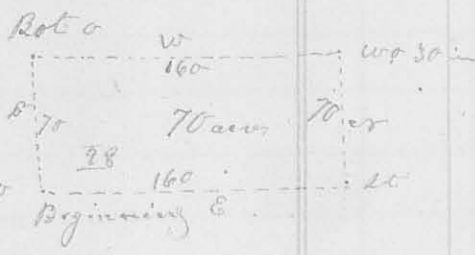 Bot o
W
160
wo 30 in
70
70 acres
70
160
st
Beginning E